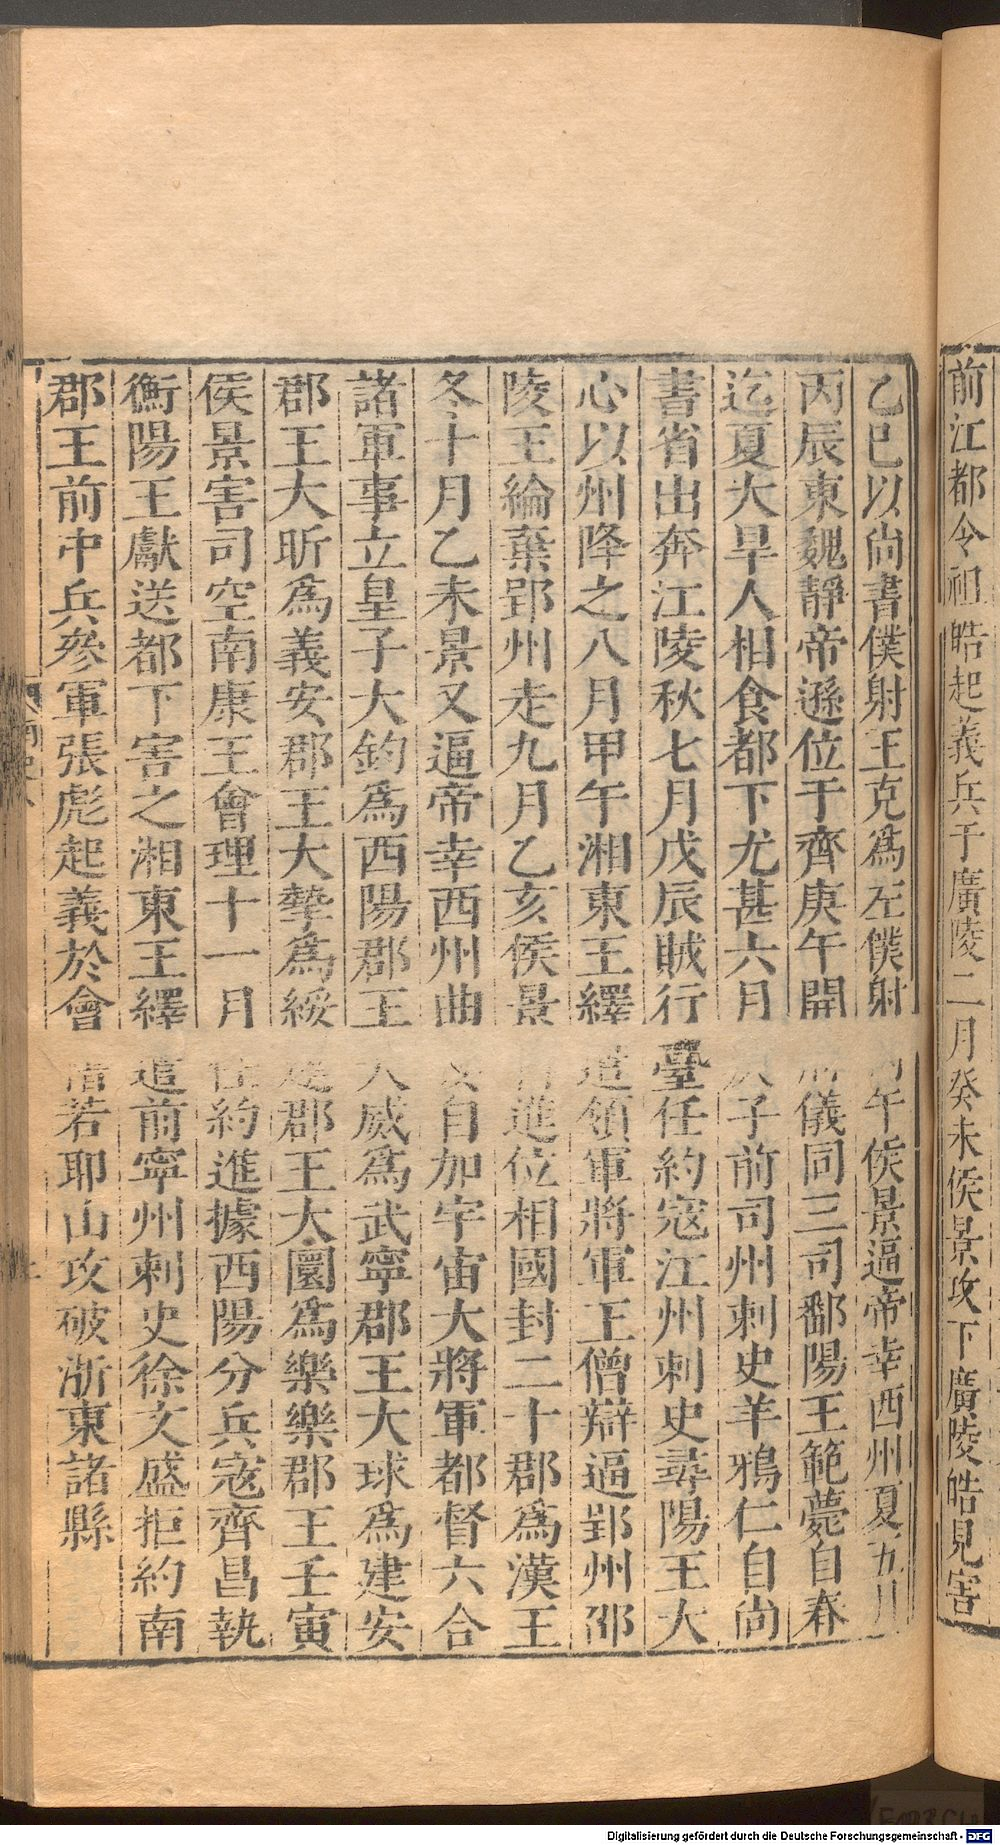 前江都令祖皓起義兵于廣陵二月癸未侯景攻下廣陵皓見害
乙巳以尚書僕射王克爲左僕射 午侯景逼帝幸西州夏五月
丙辰東魏靜帝遜位于齊庚午開 儀同三司鄱陽王範薨自春
迄夏大旱人相食都下尤甚六月 子前司州刺史羊鴉仁自尚
書省出奔江陵秋七月戊辰賊行臺任約寇江州刺史尋陽王大
心以州降之八月甲午湘東王繹遣領軍將軍王僧辯逼郢州邵
陵王綸棄郢州走九月乙亥侯景 進位相國封二十郡爲漢王
冬十月乙未景又逼帝幸西州曲 自加宇宙大將軍都督六合
諸軍事立皇子大鈞爲西陽郡王大威爲武寧郡王大球爲建安
郡王大昕爲義安郡王大摯爲綏 郡王大圜爲樂樂郡王壬寅
侯景害司空南康王會理十一月任約進據西陽分兵寇齊昌執
衡陽王獻送都下害之湘東王繹遣前寧州刺史徐文盛拒約南
郡王前中兵參軍張彪起義於會 若耶山攻破浙東諸縣
Digitalisierung gefördert durch die Deutsche Forschungsgemeinschaft - DFG